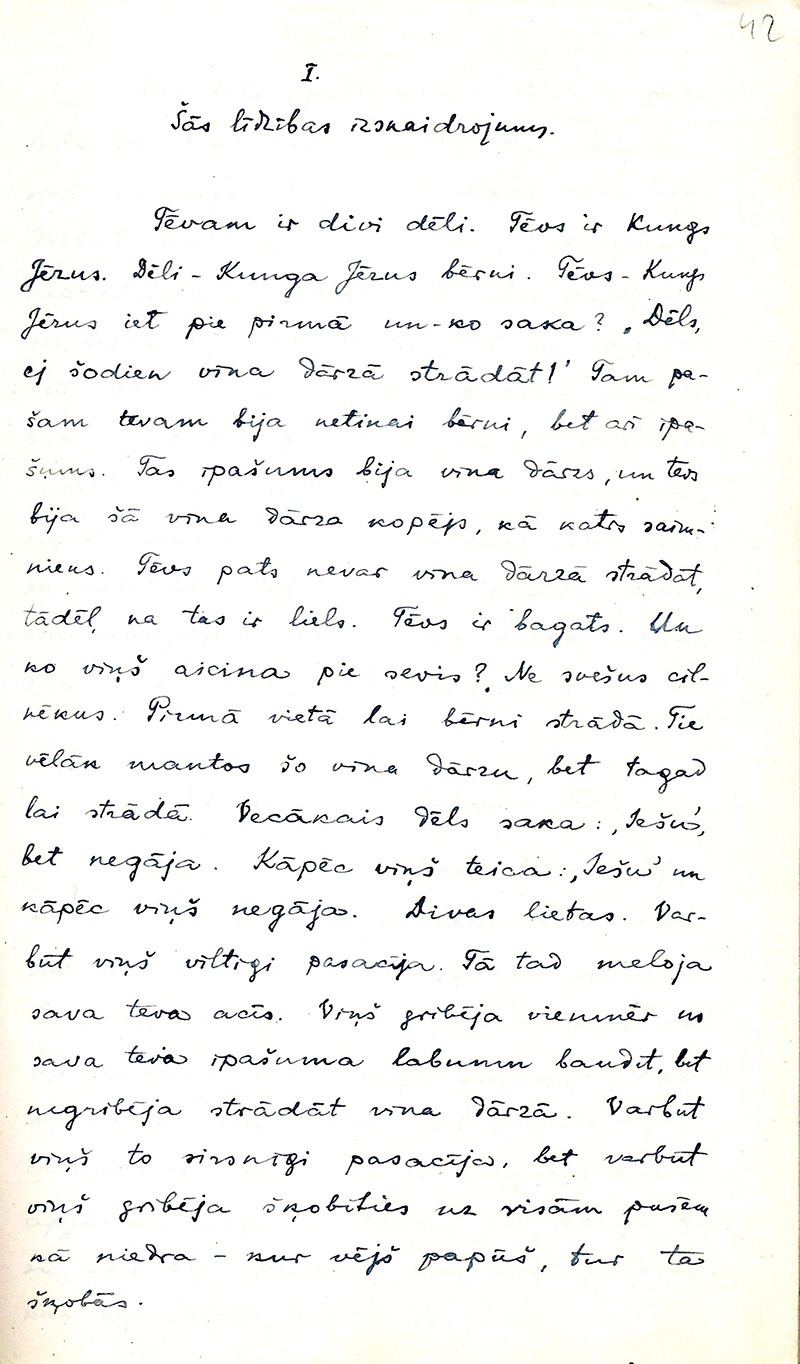 42
I.
Šās līdzības izskaidrojums.
Tēvam ir divi dēli. Tēvs ir Kungs
Jēzus. Dēli - Kunga Jēzus bērni. Tēvs - Kungs
Jēzus iet pie pirmā un - ko saka? „Dēls,
ej šodien vīna dārzā strādāt!' Tam pa-
šam tēvam bija netikai bērni, bet arī īpa-
šums. Tas īpašums bija vīna dārzs, un tēvs
bija šā vīna dārza kopējs, kā katrs saim-
nieks. Tēvs pats nevar vīna dārzā strādāt,
tādēļ, ka tas ir liels. Tēvs ir bagāts. Un
ko viņš aicina pie sevis? Ne svešus cil-
vēkus. Pirmā vietā lai bērni strādā. Tie
vēlāk mantos šo vīna dārzu, bet tagad
lai strādā. Vecākais dēls saka: ,Iešu',
bet negāja. Kāpēc viņš teica: ,Iešu' un
kāpēc viņš negāja. Divas lietas. Var-
būt viņš viltīgi pasacīja. Tā tad meloja
sava tēva acīs. Viņš gribēja vienmēr no
sava tēva īpašuma labumu baudīt, bet
negribēja strādāt vīna dārzā. Varbūt
viņš to sirsnīgi pasacīja, bet varbūt
viņš gribēja šķobīties uz visām pusēm
kā niedra - kur vējš papūš, tur tā
šķobās.